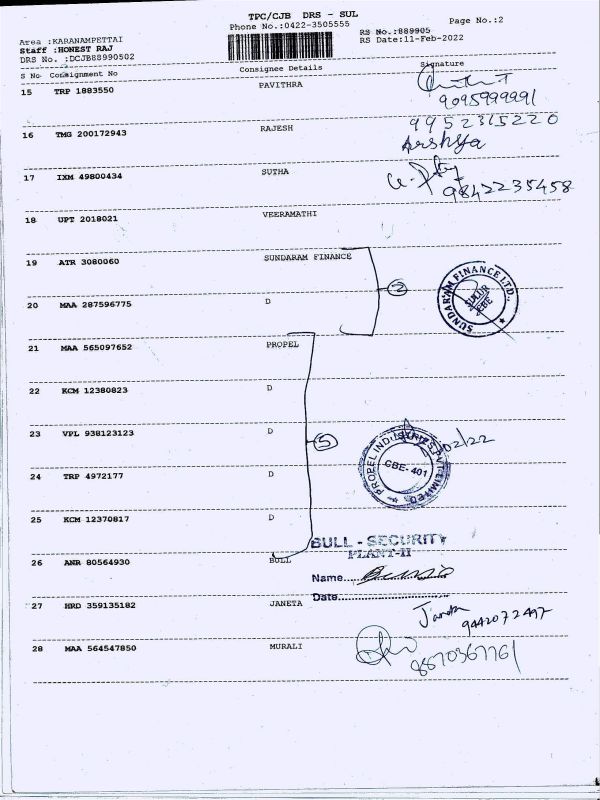 TPC/CJB DRS - SUL
Phone No.:0422-3505555
Page No.:2
Area :KARANAMPETTAI
Staff :HONEST RAJ
DRS No. :DCJB88990502
RS No.:889905
RS Date:11-Feb-2022
S No Consignment No Consignee Details Signature
15 TRP 1883550 PAVITHRA
9095999991
16 TMG 200172943 RAJESH
9952315220
Arshya
17 IXM 49800434 SUTHA
9842235458
18 UPT 2018021 VEERAMATHI
19 ATR 3080060 SUNDARAM FINANCE
2
SUNDARAM FINANCE LTD.,
SULUR
CBE
20 MAA 287596775 D
21 MAA 565097652 PROPEL
22 KCM 12380823 D
23 VPL 938123123 D
5
02/22
PROPEL INDUSTRIES PVT LIMITED
CBE-401
24 TRP 4972177 D
25 KCM 12370817 D
BULL - SECURITY
PLANT-II
26 ANR 80564930 BULL
Name
Date
27 HRD 359135182 JANETA
Janeta
9442072497
28 MAA 564547850 MURALI
8870367761